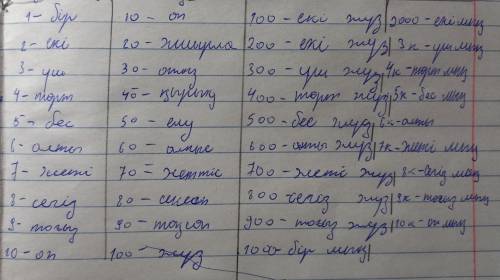 1 - бір 10 - он 100 - екі жүз 2000 - екі мың
2 - екі 20 - жиырма 200 - екі жүз 3к - үш мың
3 - үш 30 - отыз 300 - үш жүз 4к - төрт мың
4 - төрт 40 - қырық 400 - төрт жүз 5к - бес мың
5 - бес 50 - елу 500 - бес жүз 6к - алты
6 - алты 60 - алпыс 600 - алты жүз 7к - жеті мың
7 - жеті 70 - жетпіс 700 - жеті жүз 8к - сегіз мың
8 - сегіз 80 - сексен 800 - сегіз жүз 9к - тоғыз мың
9 - тоғыз 90 - тоқсан 900 - тоғыз жүз 10к - он мың
10 - он 100 - жүз 1000 - бір мың